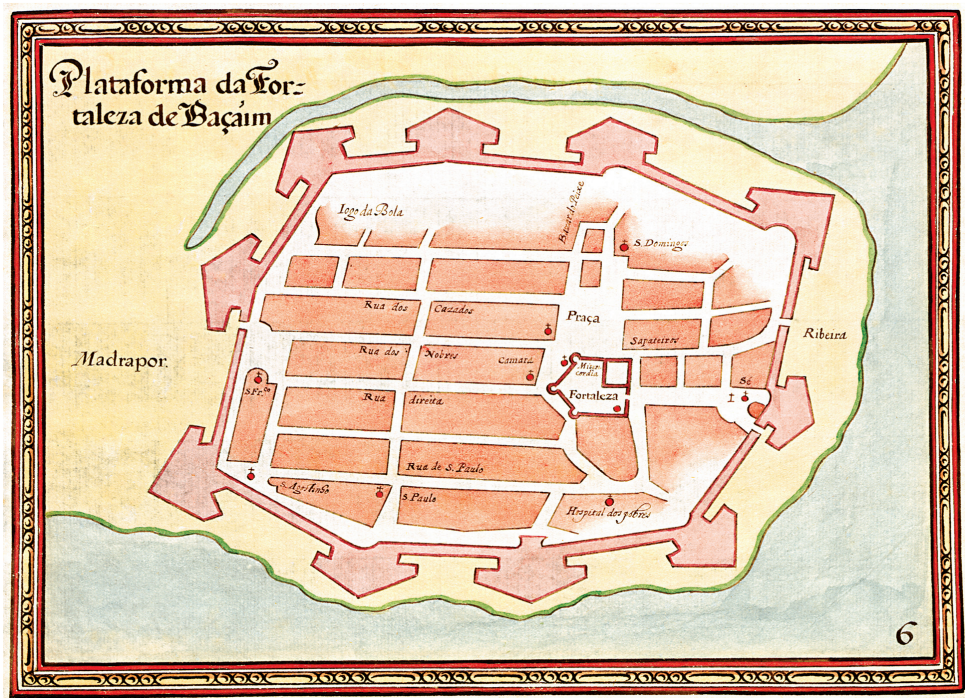 Plataforma da For-
taleza de Baçáim
Iogo da Bola
Bazar do Peixe
S. Domingos
Praça
Rua dos Cazados
Sapateiros
Ribeira
Madrapor.
Rua dos Nobres
Camara
Miseri
cordia
Fortaleza
Sé
S. Fr.co
Rua direita
Rua de S. Paulo
S. Agostinho
S. Paulo
Hospital dos pobres
6